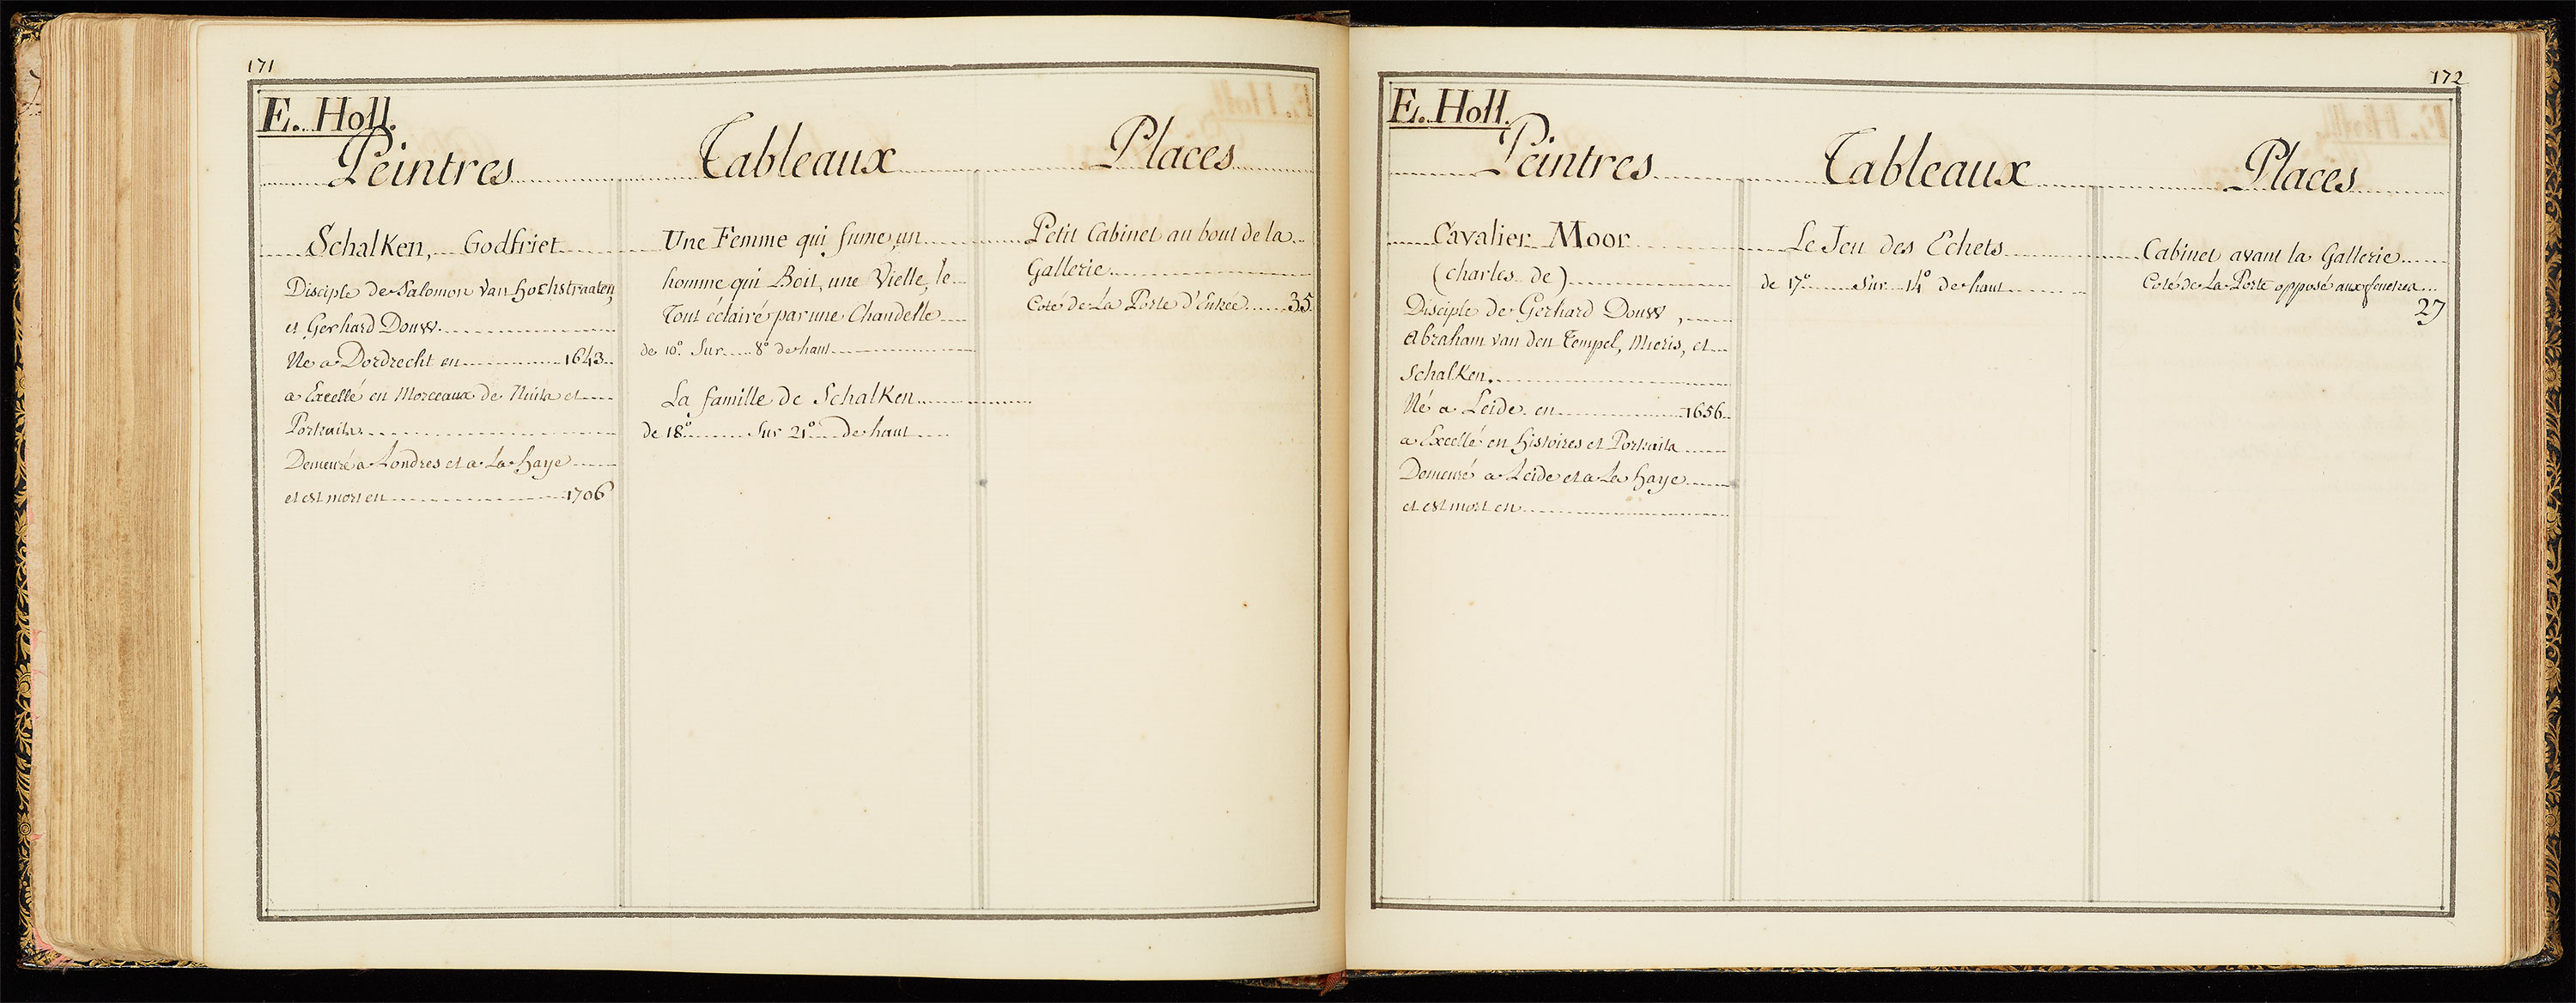 171
E. Holl.
Peintres
Tableaux
Places
Schalken, Godfriet
Disciple de Salomon Van Hochstraaten,
et Gerhard Douw.
Né a Dordrecht en 1643.
a Excellé en Morceaux de Nuits et
Portraits.
Demeuré a Londres et a La Haye
et est mort en 1706
Une Femme qui fume, un
homme qui Boit, une Vielle, le
Tout éclairé par une Chandelle
de 10° Sur 8° de haut
La famille de Schalken
de 18° Sur 21° de haut
Petit Cabinet au bout de la
Gallerie
Coté de La Porte d'Entrée 35
172
E. Holl.
Peintres
Tableaux
Places
Cavalier Moor
(charles de)
Disciple de Gerhard Douw,
Abraham van den Tempel, Mieris, et
Schalken.
Né a Leide en 1656
a Excellé en Histoires et Portraits
Demeuré a Leide et a La Haye
et est mort en
Le Jeu des Echets
de 17° Sur 14° de haut
Cabinet avant la Gallerie
Coté de La Porte opposé aux fenetres
27